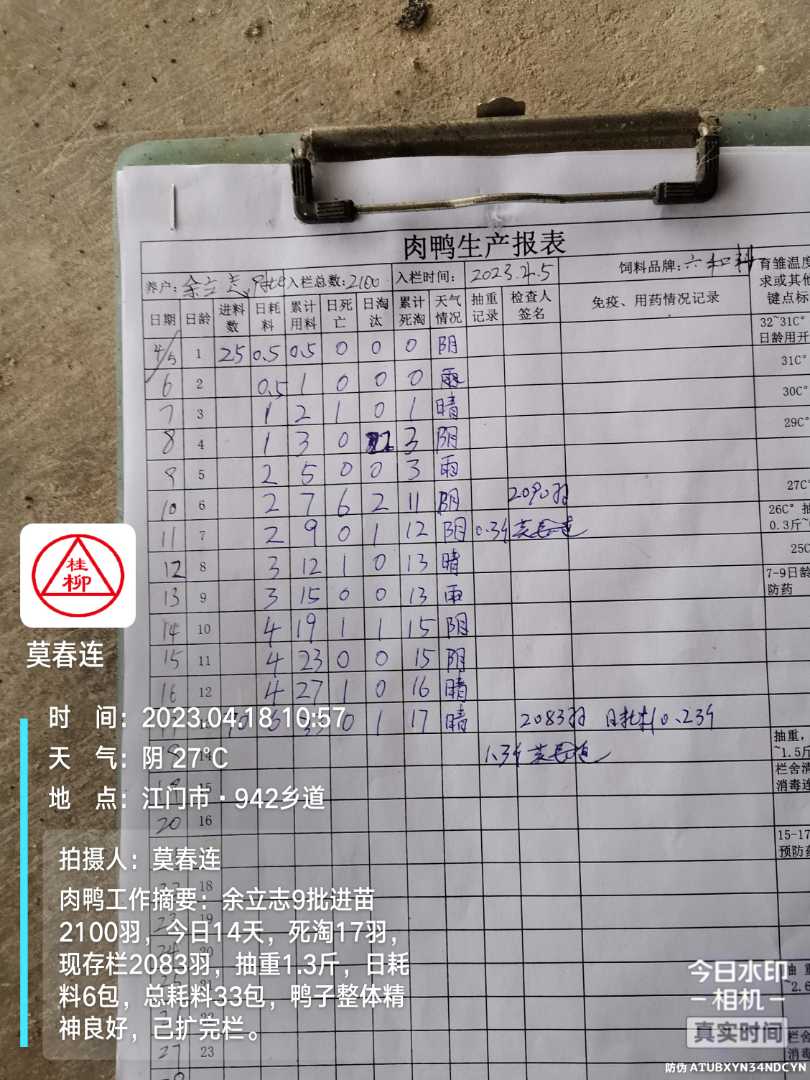 肉鸭生产报表
养户: 余立志 入栏总数: 2100 入栏时间: 2023.4.5 饲料品牌: 六和料 育雏温度
求或其他
键点标
日期 日龄 进料数 日耗料 累计用料 日死亡 日淘汰 累计死淘 天气情况 抽重记录 检查人签名 免疫、用药情况记录
32~31C°
日龄用开
4/5 1 25 0.5 0.5 0 0 0 阴
31C°
6 2 0.5 1 0 0 0 雨
30C°
7 3 1 2 1 0 1 晴
29C°
8 4 1 3 0 2 3 阴
9 5 2 5 0 0 3 雨
27C°
10 6 2 7 6 2 11 阴 2090羽
26C° 抽
0.3斤~
11 7 2 9 0 1 12 阴 0.3斤 莫春连
25C
12 8 3 12 1 0 13 晴
7-9日龄
防药
13 9 3 15 0 0 13 雨
14 10 4 19 1 1 15 阴
15 11 4 23 0 0 15 阴
16 12 4 27 1 0 16 晴
17 6 33 0 1 17 晴 2083羽 日耗料0.23斤
抽重,
~1.5斤
14 1.3斤 莫春连
栏舍清
消毒连
15
20 16
15-17
预防药
18
19
27 23
桂柳
莫春连
时 间: 2023.04.18 10:57
天 气: 阴 27°C
地 点: 江门市·942乡道
拍摄人: 莫春连
肉鸭工作摘要: 余立志9批进苗
2100羽，今日14天，死淘17羽，
现存栏2083羽，抽重1.3斤，日耗
料6包，总耗料33包，鸭子整体精
神良好，已扩完栏。
今日水印
相机
真实时间
防伪 ATUBXYN34NDCYN